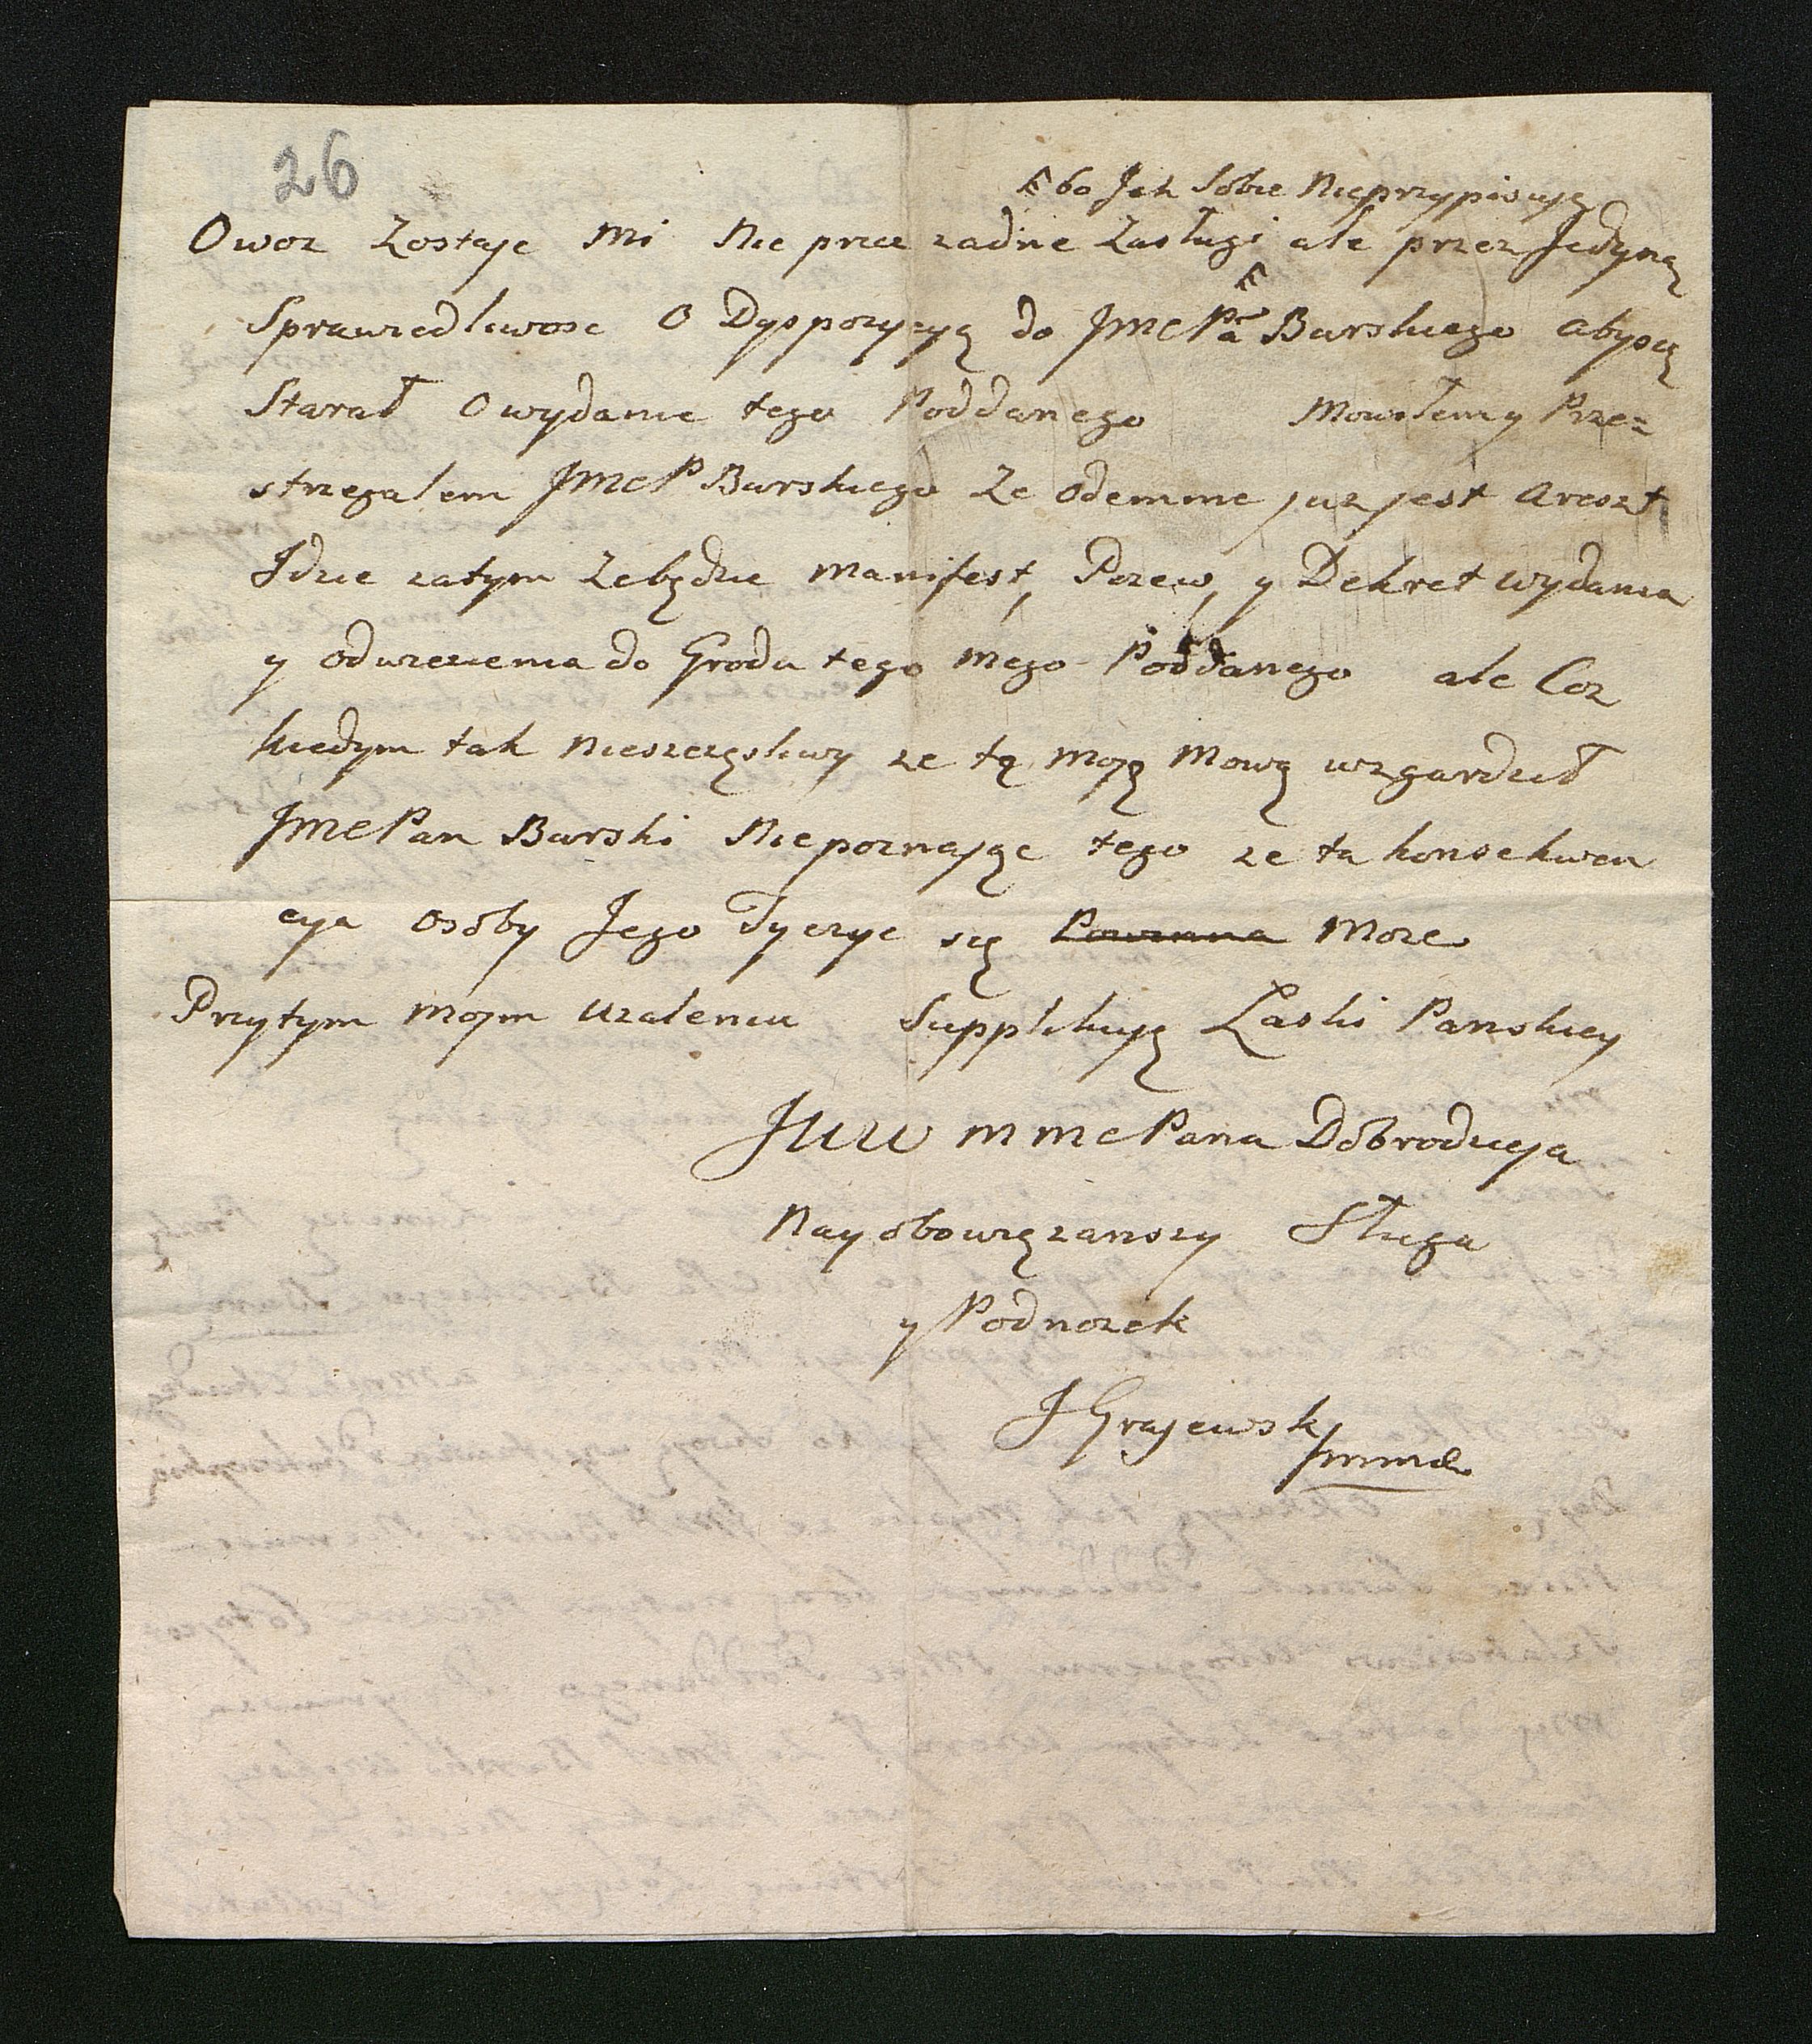 26
bo Jch Sobie Nieprzypisuję
Owoz Zostaje mi Nie prze zadne Zasługi ale przez Jedyną
Sprawiedliwosc O Dyspozycyą do JMCPa Burskiego abysię
Starał O wydanie tego Poddanego Mowiłem y Prze=
strzegalem JMCP Burskiego Ze odemnie juz jest areszt
Idzie zatym Zebędzie manifest, Pozew, y Dekret wydania
y odwiezienia do Grodu tego mego Poddanego ale Coz
kiedym tak nieszczęsliwy ze tę moję Mowę wzgardził
JMCPan Burski Niepoznając tego ze ta konsekwen
cya osoby Jego Tyczyc się Powinna Moze
Przytym mojm Uzaleniu Supplikuję Łaski Panskiey
JWW mmcPana Dobrodzieja
Nayobowęzanszy Sługa
y Podnozek
JGrajewski mmp